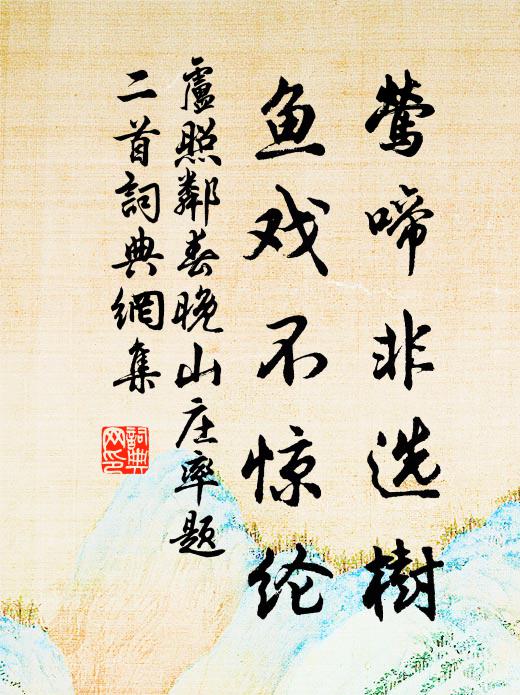 莺啼非选樹
鱼戏不惊纶
盧照鄰春晚山庄率题
二首詞典網集
詞典网印